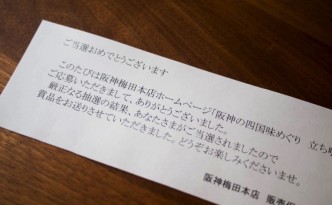 ご当選おめでとうございます
このたびは阪神梅田本店ホームページ「阪神の四国味めぐり　立ち
ご応募いただきまして、ありがとうございました。
厳正なる抽選の結果、あなたさまがご当選されましたので
賞品をお送りさせていただきました。どうぞお楽しみくださいませ。
阪神梅田本店　販売